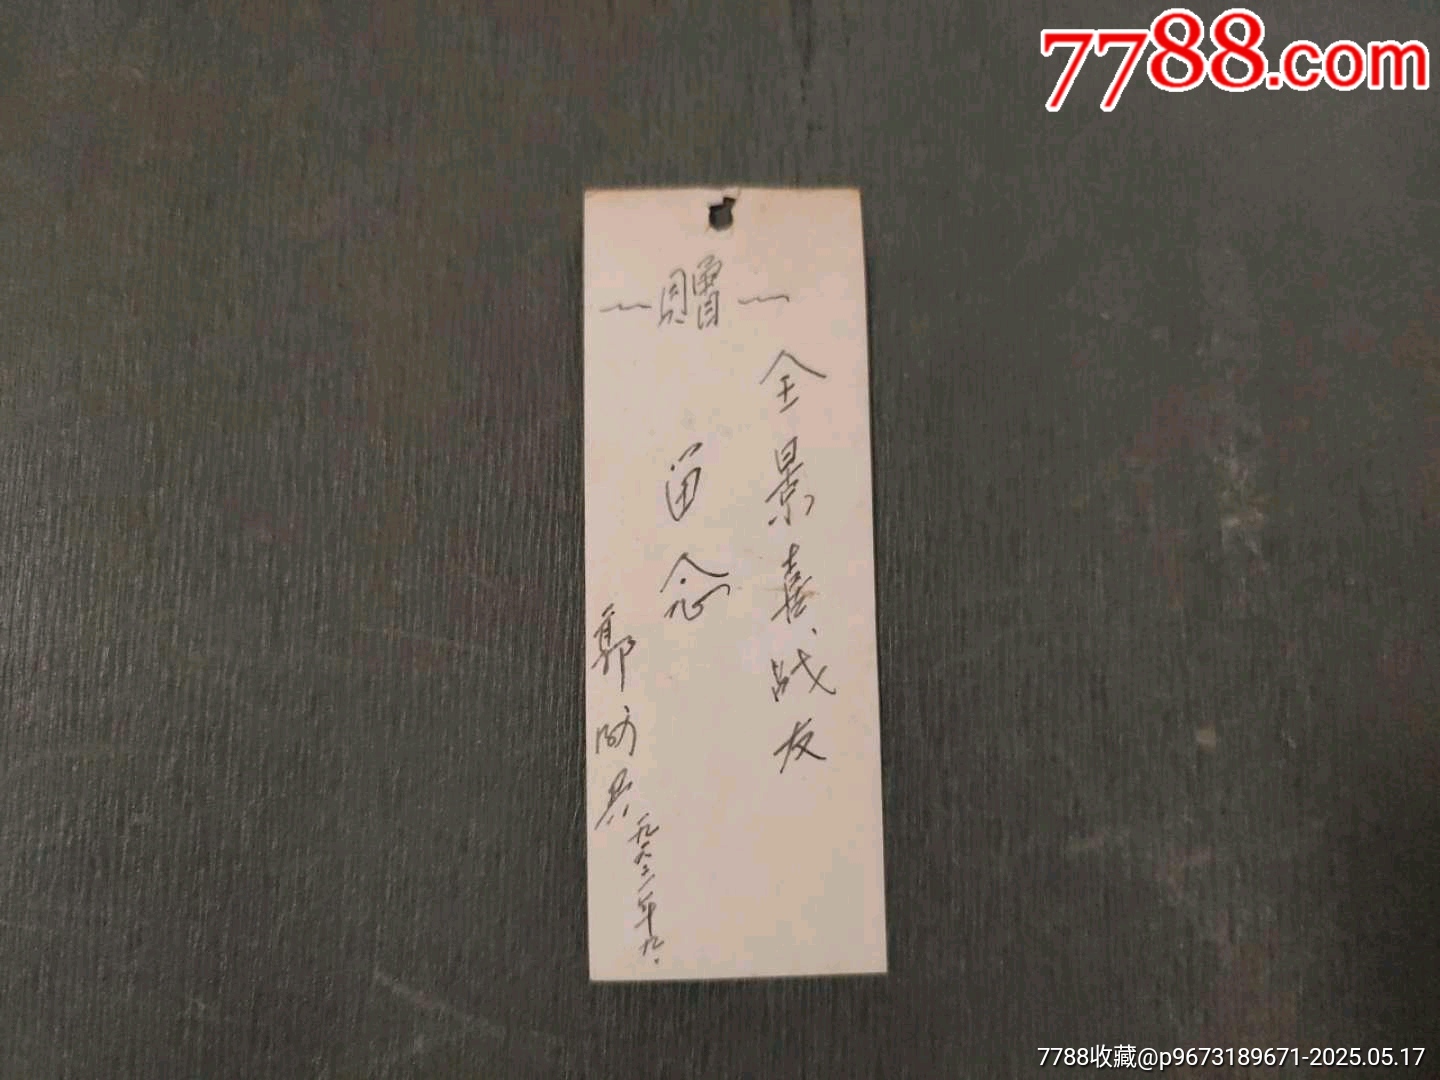 7788.com
~贈~
全景喜战友
留念
郭防兵
一九六三年九.
7788收藏@p9673189671-2025.05.17